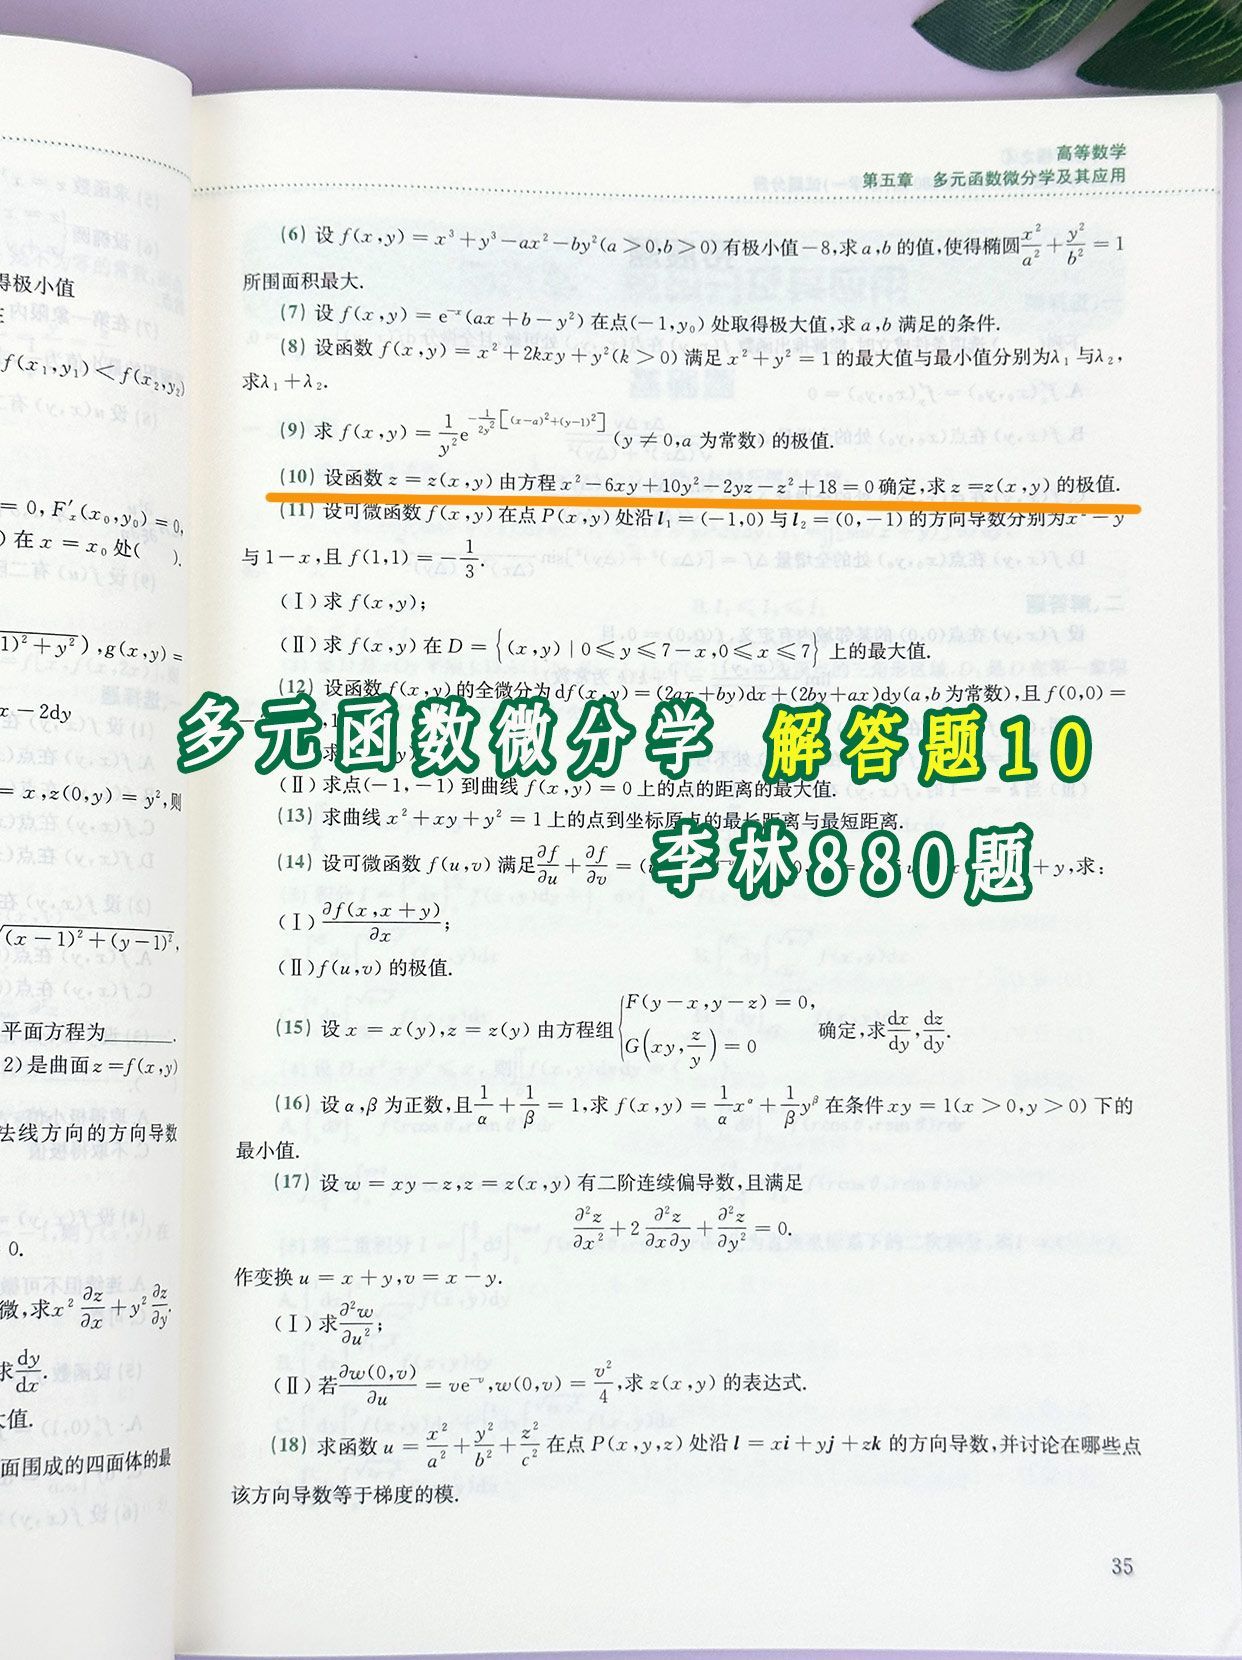 高等数学
第五章 多元函数微分学及其应用
得极小值
f(x₁,y₁)<f(x₂,y₂)
= 0, F′ₓ(x₀,y₀) = 0,
) 在 x = x₀ 处( ).
1)²+y²), g(x,y) =
x − 2dy
= x, z(0,y) = y², 则
√(x−1)²+(y−1)²,
平面方程为______.
2)是曲面z=f(x,y)
法线方向的方向导数
0.
微,求x² ∂z/∂x + y² ∂z/∂y.
求dy/dx.
大值.
面围成的四面体的最
(6) 设 f(x,y) = x³+y³−ax²−by²(a>0,b>0)有极小值−8,求a,b的值,使得椭圆x²/a²+y²/b²=1
所围面积最大.
(7) 设 f(x,y) = e⁻ˣ(ax+b−y²) 在点(−1,y₀) 处取得极大值,求a,b 满足的条件.
(8) 设函数 f(x,y) = x²+2kxy+y²(k>0) 满足 x²+y²=1的最大值与最小值分别为λ₁与λ₂,
求λ₁+λ₂.
(9) 求 f(x,y) = 1/y² e^{−1/(2y²)[(x−a)²+(y−1)²]} (y≠0,a 为常数) 的极值.
(10) 设函数 z = z(x,y) 由方程 x²−6xy+10y²−2yz−z²+18=0确定,求 z=z(x,y) 的极值.
(11) 设可微函数 f(x,y) 在点 P(x,y) 处沿 l₁=(−1,0) 与 l₂=(0,−1) 的方向导数分别为x²−y
与1−x,且 f(1,1) = −1/3.
(Ⅰ) 求 f(x,y);
(Ⅱ) 求 f(x,y) 在 D = {(x,y) | 0≤y≤7−x,0≤x≤7} 上的最大值.
(12) 设函数 f(x,y)的全微分为df(x,y)=(2ax+by)dx+(2by+ax)dy(a,b为常数),且 f(0,0)=
多元函数微分学 解答题10
(Ⅱ) 求点(−1,−1) 到曲线 f(x,y) = 0 上的点的距离的最大值.
(13) 求曲线 x²+xy+y²=1上的点到坐标原点的最长距离与最短距离.
李林880题
(14) 设可微函数 f(u,v) 满足∂f/∂u+∂f/∂v=( + y,求:
(Ⅰ) ∂f(x,x+y)/∂x;
(Ⅱ)f(u,v) 的极值.
(15) 设 x = x(y),z = z(y) 由方程组{F(y−x,y−z)=0, G(xy,z/y)=0 确定,求dx/dy,dz/dy.
(16) 设α,β为正数,且1/α+1/β=1,求 f(x,y) = 1/α x^α + 1/β y^β 在条件 xy=1(x>0,y>0) 下的
最小值.
(17) 设 w = xy−z,z = z(x,y) 有二阶连续偏导数,且满足
∂²z/∂x² + 2 ∂²z/∂x∂y + ∂²z/∂y² = 0.
作变换 u = x+y,v = x−y.
(Ⅰ) 求∂²w/∂u²;
(Ⅱ) 若∂w(0,v)/∂u = ve⁻ᵛ,w(0,v) = v²/4,求 z(x,y) 的表达式.
(18) 求函数 u = x²/a²+y²/b²+z²/c² 在点 P(x,y,z) 处沿 l = xi+yj+zk 的方向导数,并讨论在哪些点
该方向导数等于梯度的模.
35